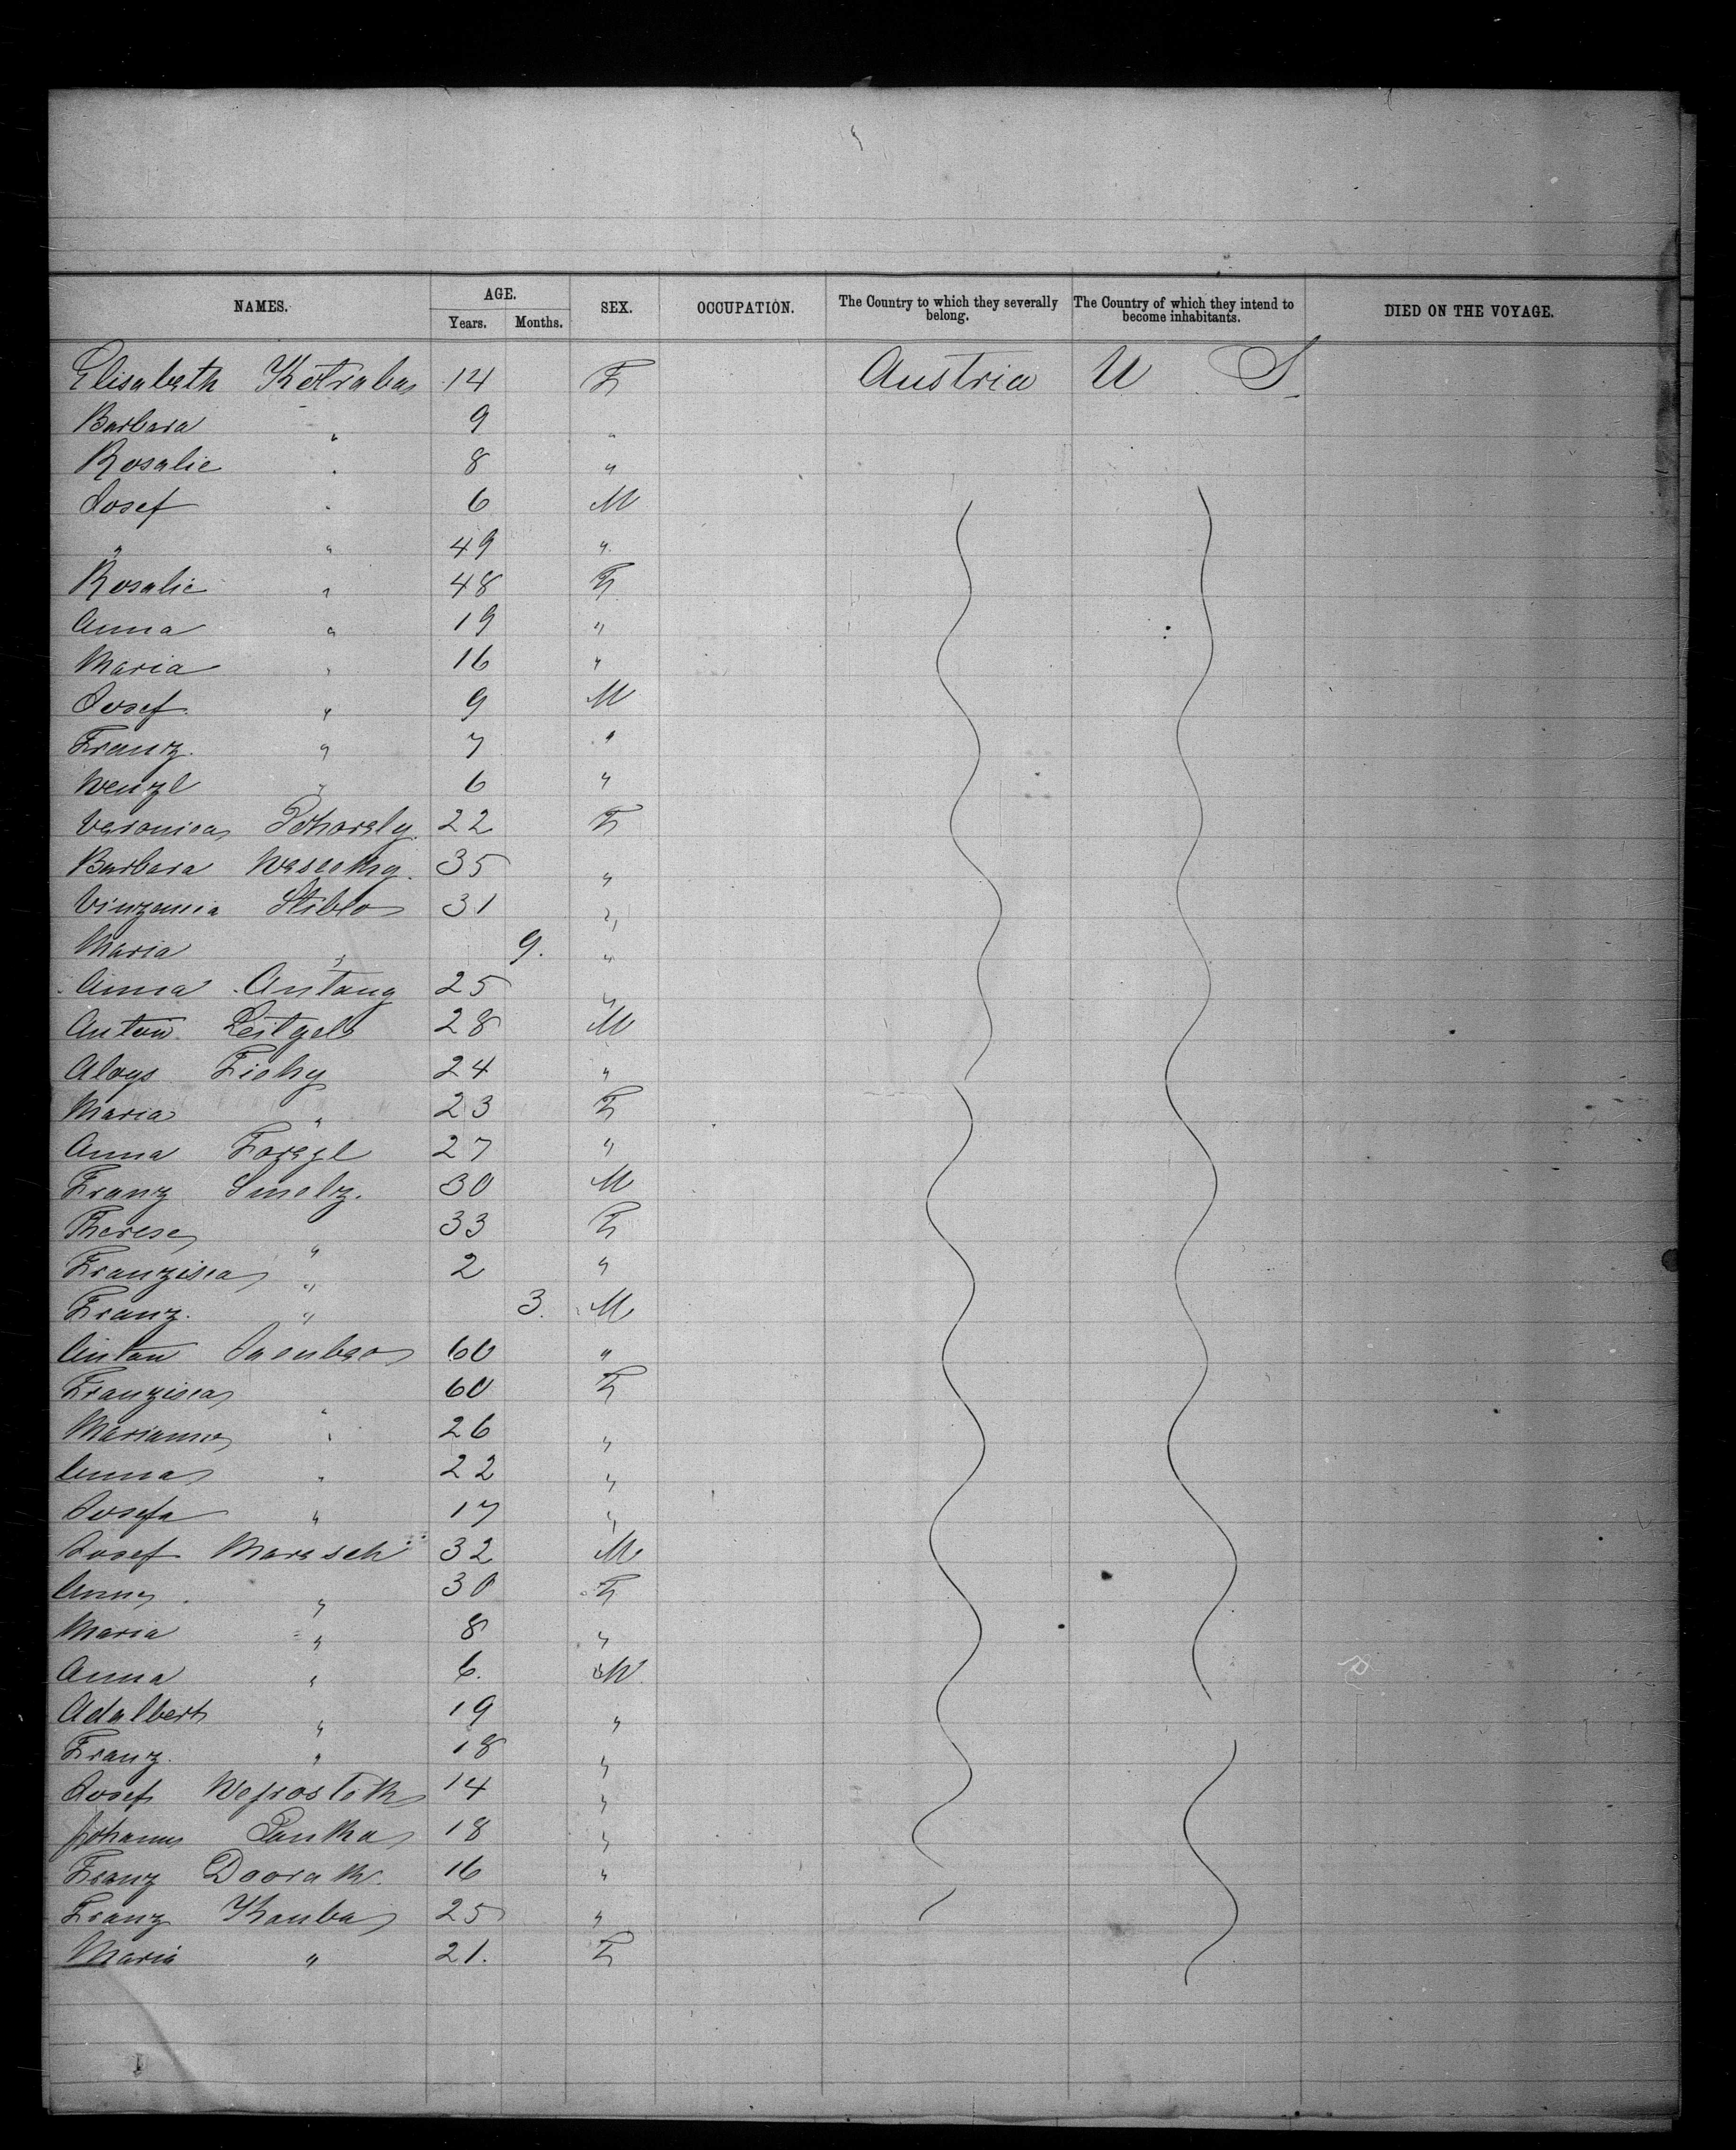 NAMES. AGE. SEX. OCCUPATION. The Country to which they severally belong. The Country of which they intend to become inhabitants. DIED ON THE VOYAGE.
Years. Months.
Elisabeth Kotraba 14 F Austria U S
Barbara " 9 "
Rosalie " 8 "
Josef " 6 M
" " 49 "
Rosalie " 48 F
Anna " 19 "
Maria " 16 "
Josef " 9 M
Franz " 7 "
Wenzl " 6 "
Veronica Pohorely 22 F
Barbara 35 "
Stiblo 31 "
Maria " 9. "
Anna 25 "
Anton Leitgeb 28 M
Aloys Fichy 24 "
Maria " 23 F
Anna 27 "
Franz Smolz. 30 M
Therese " 33 F
Franzisca " 2 "
Franz. " 3. M
Anton 60 "
Franzisca " 60 F
Marianna " 26 "
Anna " 22 "
Josefa " 17 "
Josef Maresch 32 M
Anna " 30 F
Maria " 8 "
Anna " 6. M
Adalbert " 19 "
Franz. " 18 "
Josef 14 "
Johann Panka 18 "
Franz Doorak. 16 "
Franz Kauba 25 "
Maria " 21. F